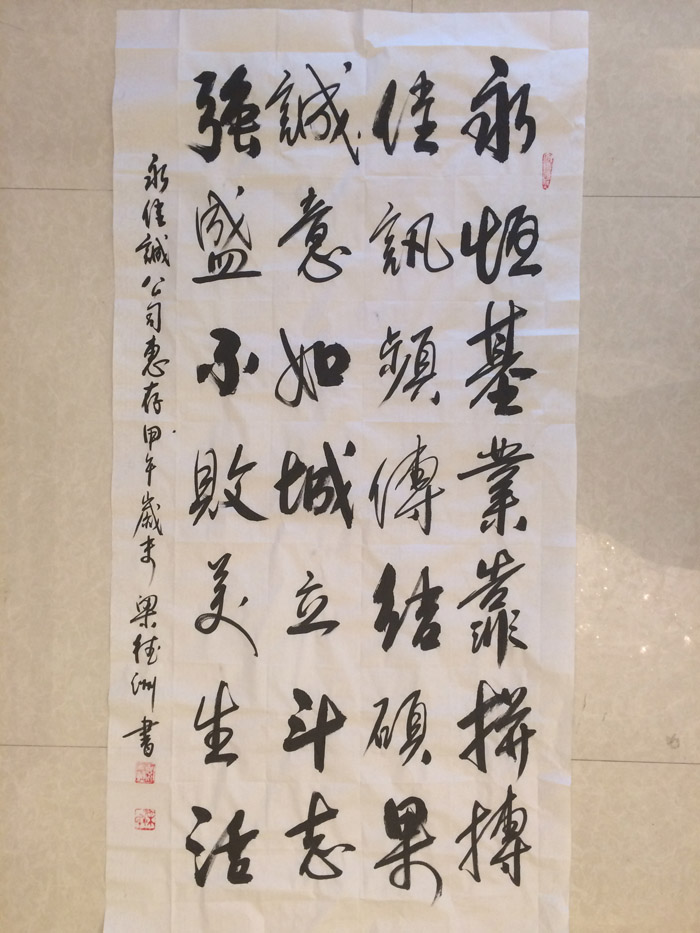 永恒基業靠拼搏
佳訊頻傳結碩果
誠意如城立斗志
強盛不敗美生活
永佳誠公司惠存甲午歲末 梁德洲書